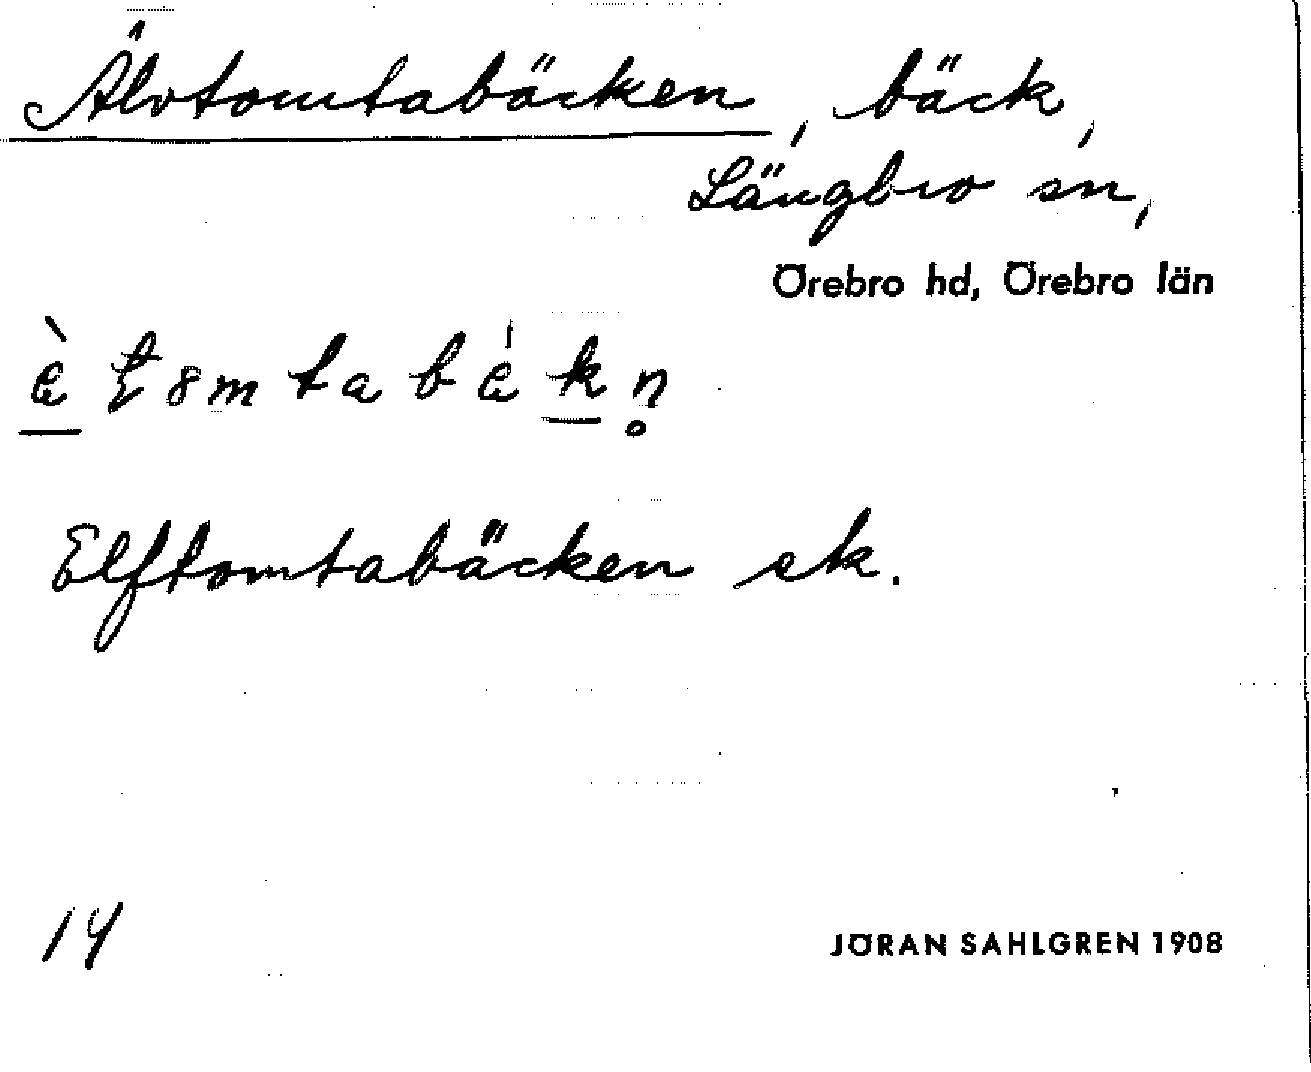 Älvtomtabäcken, bäck,
Längbro sn,
Örebro hd, Örebro län
Elftomtabäcken ek.
14
JÖRAN SAHLGREN 1908